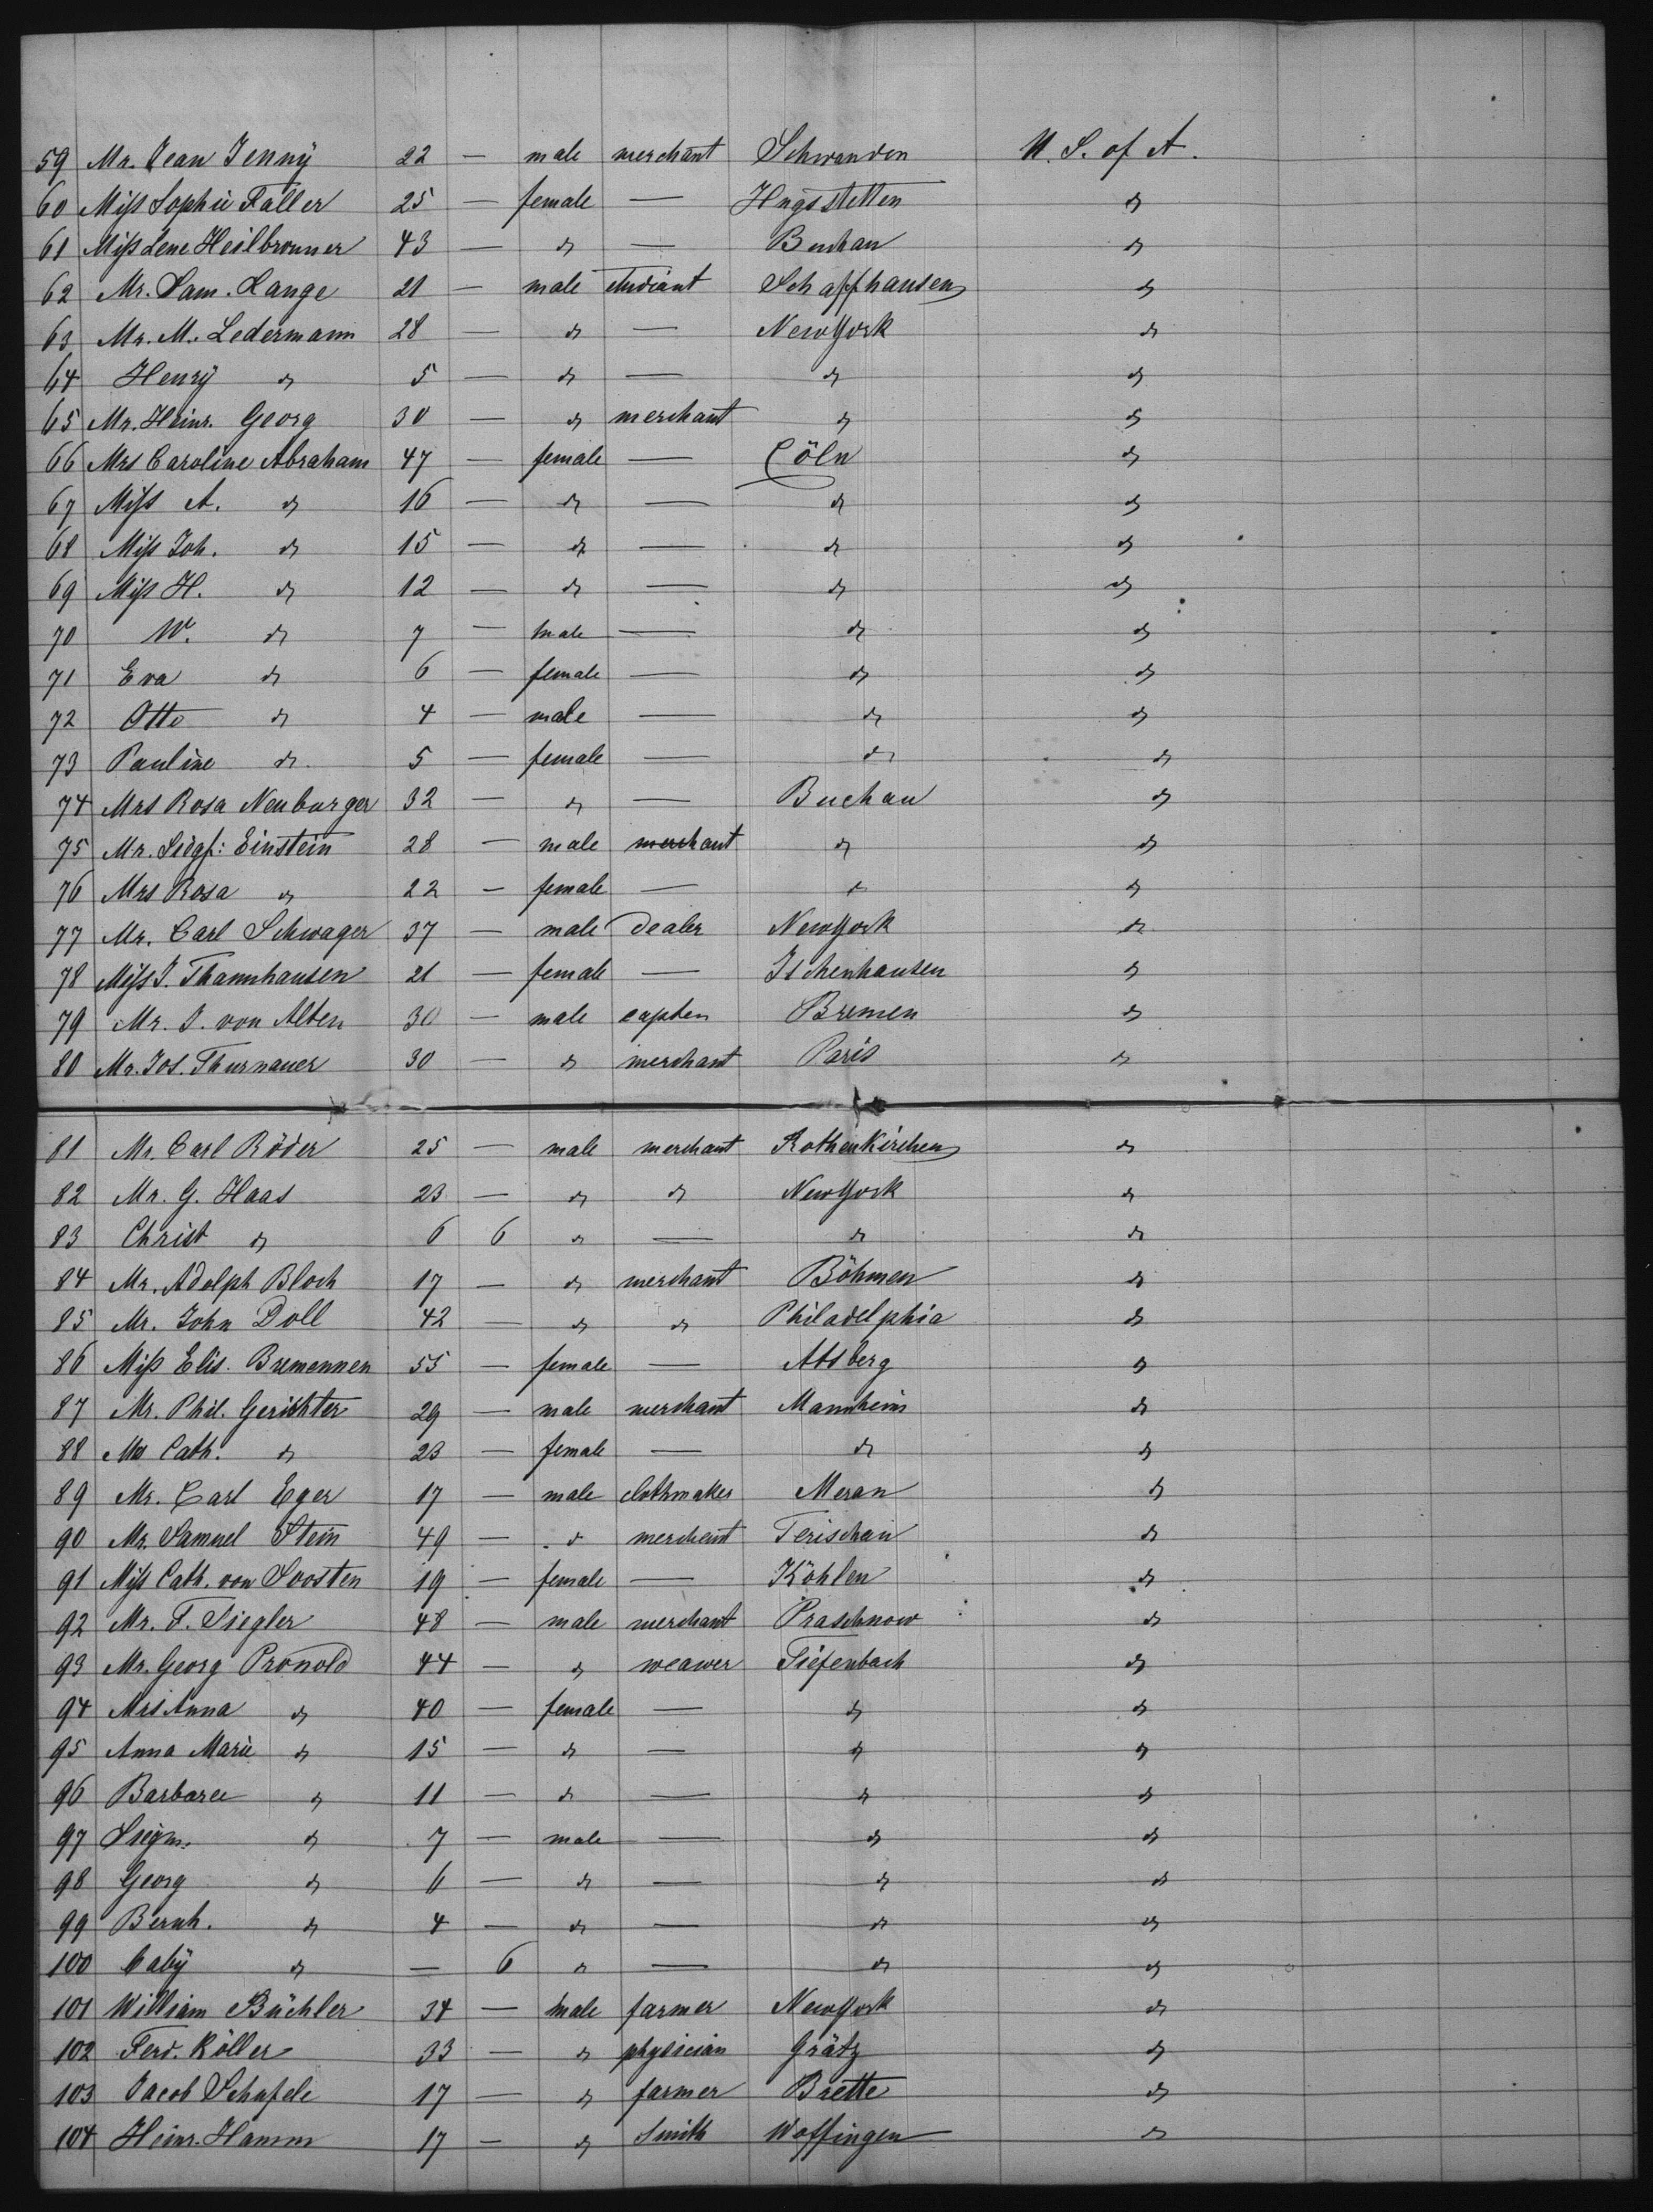 59 Mr. Jean Jenny 22 — male merchant Schwanden U. S. of A.
60 Miss Sophie Faller 25 — female — Hugstetten do
61 Miss Lene Heilbronner 43 — do — Buchau do
62 Mr. Sam. Lange 21 — male studiant Schaffhausen do
63 Mr. M. Ledermann 28 — do — NewYork do
64 Henry do 5 — do — do do
65 Mr. Heinr. Georg 30 — do merchant do do
66 Mrs Caroline Abraham 47 — female — Cöln do
67 Miss A. do 16 — do — do do
68 Miss Joh. do 15 — do — do do
69 Miss H. do 12 — do — do do
70 W. do 7 — male — do do
71 Eva do 6 — female — do do
72 Otto do 4 — male — do do
73 Pauline do 5 — female — do do
74 Mrs Rosa Neuburger 32 — do — Buchau do
75 Mr. Einstein 28 — male merchant do do
76 Mrs Rosa do 22 — female — do do
77 Mr. Carl Schwager 37 — male dealer NewYork do
78 Miss J. Thannhausen 21 — female — Ichenhausen do
79 Mr. J. von Alten 30 — male capten Bremen do
80 Mr. Jos. Thurnauer 30 — do merchant Paris do
81 Mr. Carl Röder 25 — male merchant Rothenkirchen do
82 Mr. G. Haas 23 — do do NewYork do
83 Christ do 6 6 do — do do
84 Mr. Adolph Bloch 17 — do merchant Böhmen do
85 Mr. John Doll 42 — do do Philadelphia do
86 Miss Elis. Bremennen 55 — female — Absberg do
87 Mr. Phil. Gerichter 29 — male merchant Mannheim do
88 Mrs Cath. do 23 — female — do do
89 Mr. Carl Eger 17 — male clothmaker Meran do
90 Mr. Samuel Stein 49 — do merchant Terischau do
91 Miss Cath. von Soosten 19 — female — Köhlen do
92 Mr. F. Siegler 48 — male merchant Praschnow do
93 Mr. Georg Pronold 44 — do weawer Tiefenbach do
94 Mrs Anna do 40 — female — do do
95 Anna Marie do 15 — do — do do
96 Barbara do 11 — do — do do
97 Siegm. do 7 — male — do do
98 Georg do 6 — do — do do
99 Bernh. do 4 — do — do do
100 baby do — 6 do — do do
101 William Büchler 34 — male farmer NewYork do
102 Ferd. Köller 33 — do physician Grätz do
103 Jacob Schafele 17 — do farmer Brette do
104 Heinr. Hamm 17 — do Smith Woffingen do